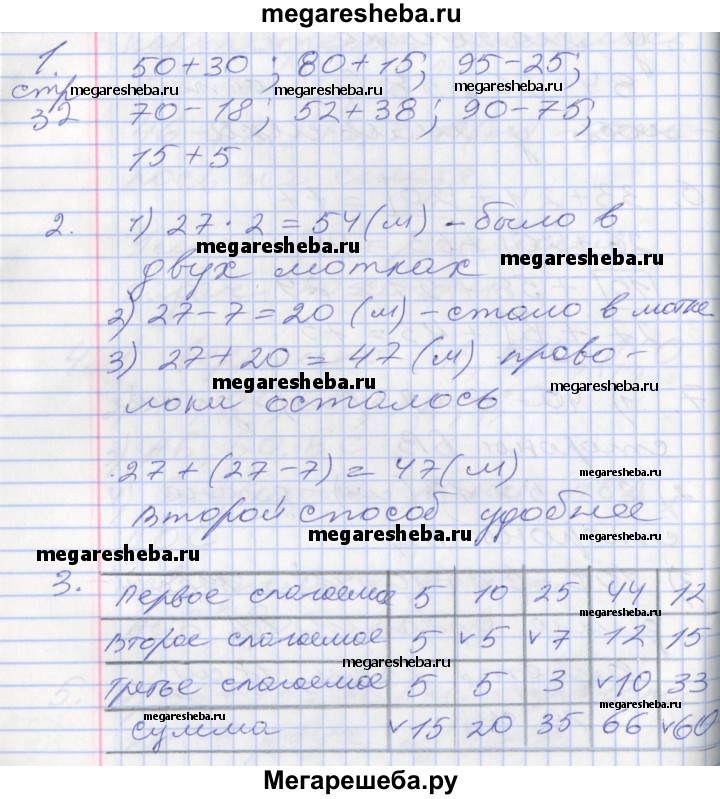 megaresheba.ru
1. 50+30; 80+15; 95-25;
стр megaresheba.ru megaresheba.ru megaresheba.ru
32 70-18; 52+38; 90-75;
15+5
2. 1) 27·2=54(м) - было в
megaresheba.ru megaresheba.ru
двух мотках
2) 27-7=20 (м) - стало в мотке
3) 27+20=47 (м) прово-
megaresheba.ru megaresheba.ru
локи осталось
27+(27-7)=47(м)
megaresheba.ru
Второй способ удобнее
megaresheba.ru megaresheba.ru
3. Первое слагаемое 5 10 25 44 12
megaresheba.ru
Второе слагаемое 5 v5 v7 12 15
megaresheba.ru
Третье слагаемое 5 5 3 v10 33
megaresheba.ru megaresheba.ru
Сумма v15 20 35 66 v60
Мегарешеба.ру